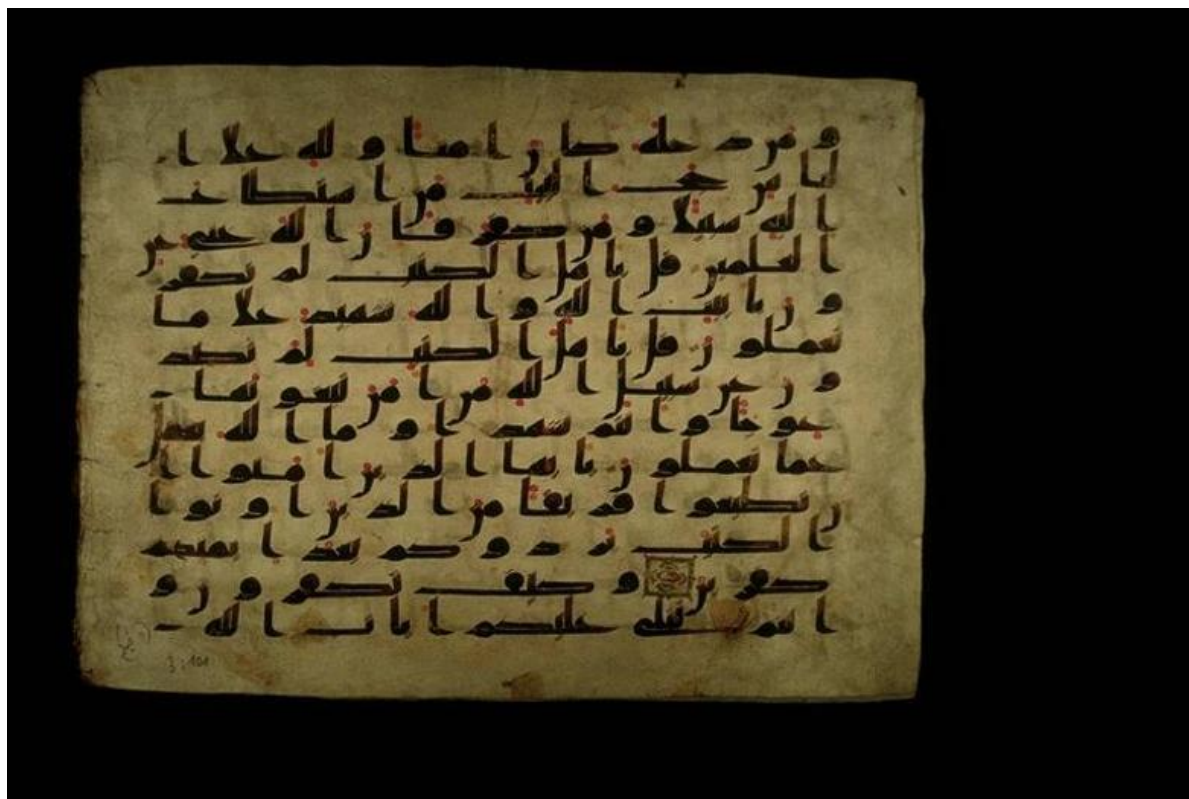 ومن دخله كان امنا ولله علا ا
لناس حج البيت من استطاع
اليه سبيلا ومن كفر فان الله غني عن
العلمين قل ياهل الكتب لم تكفر
ون بايت الله والله شهيد علا ما
تعملون قل ياهل الكتب لم تصد
ون عن سبيل الله من امن تبغونها
عوجا وانتم شهدا وما الله بغفل
عما تعملون يايها الذين امنوا ا
ن تطيعوا فريقا من الذين اوتوا
الكتب يردوكم بعد ايمنكم
كفرين وكيف تكفرون و
انتم تتلى عليكم ايات الله
3:101